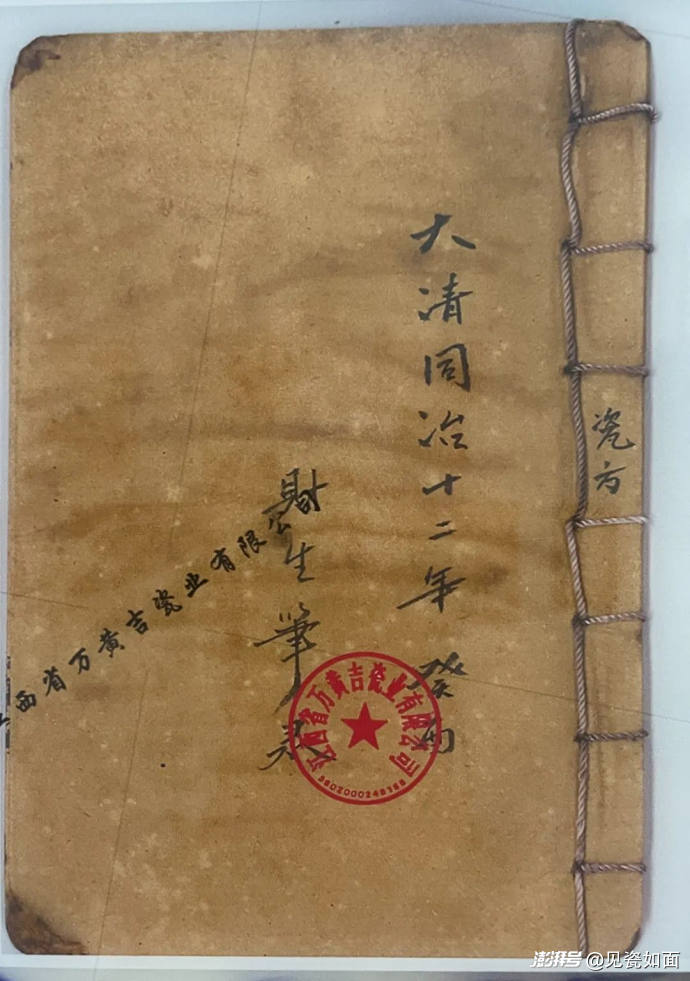 瓷方
大清同治十二年 癸酉
財生筆
西省万黄吉瓷业有限公
江西省万黄吉瓷业有限公司
澎湃号@见瓷如面